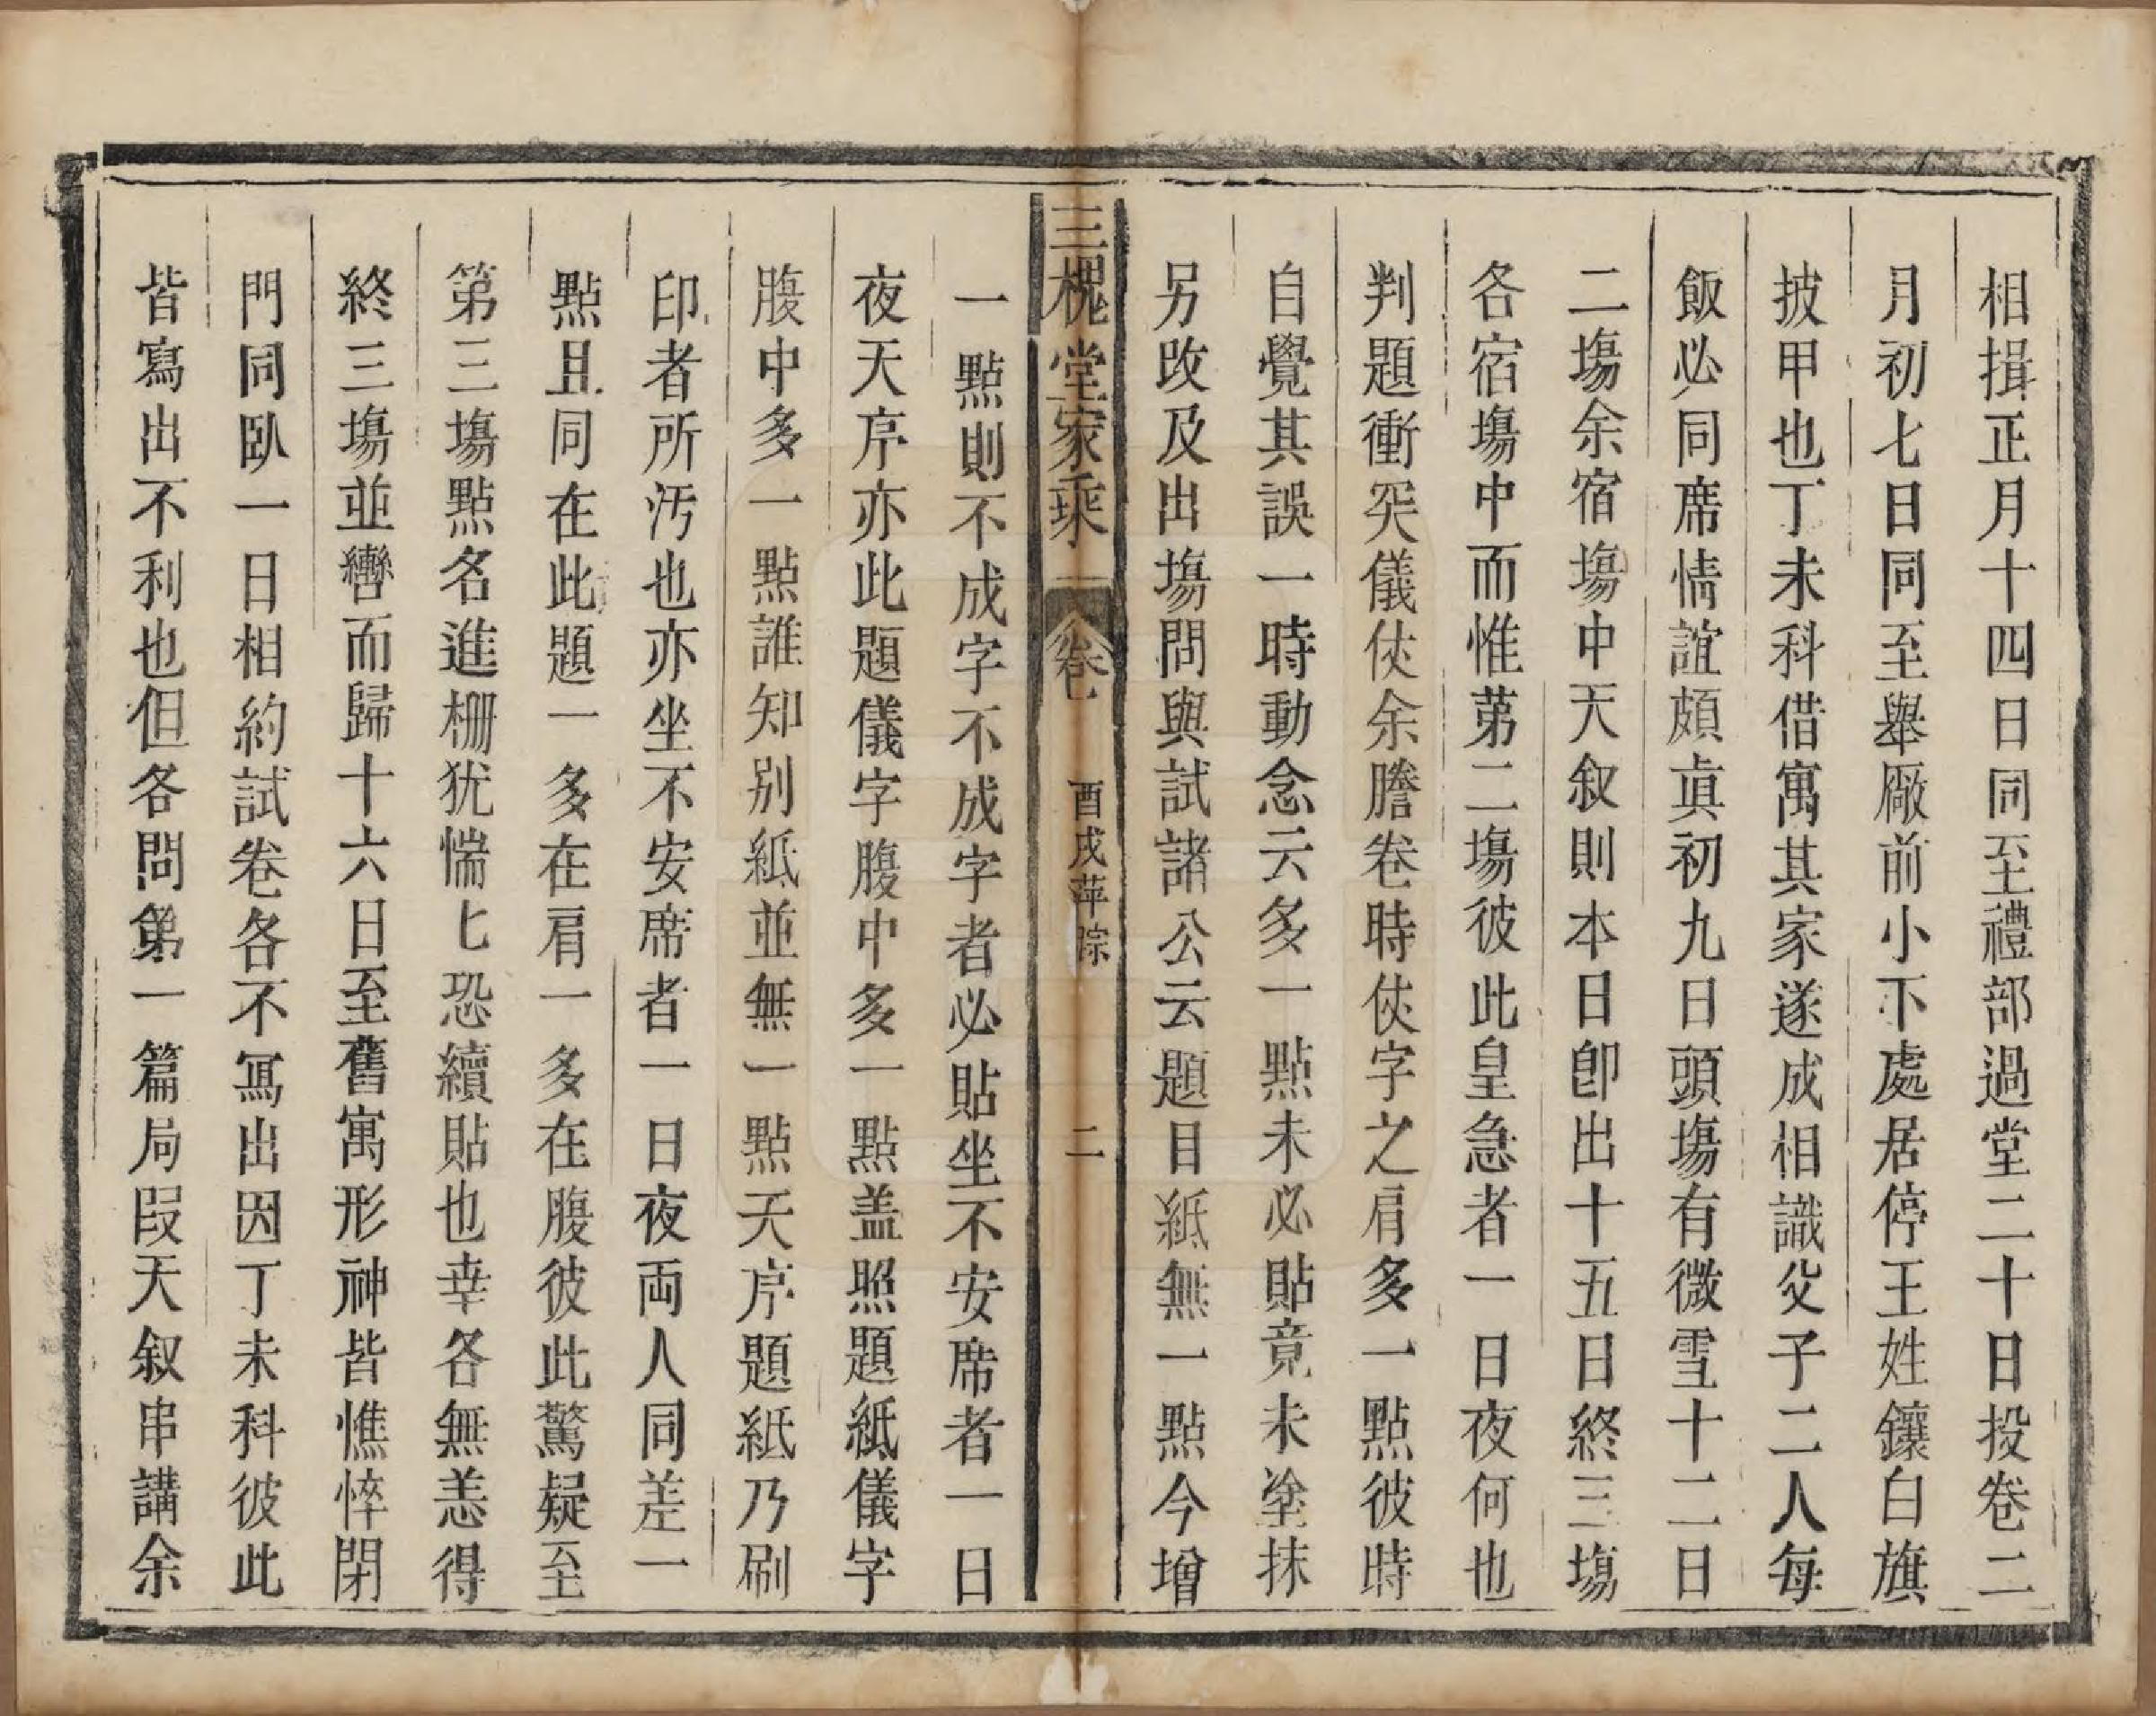 相揖正月十四日同至禮部過堂二十日投卷二
月初七日同至舉厰前小下處居停王姓鑲白旗
披甲也丁未科借寓其家遂成相識父子二人每
飯必同席情誼頗眞初九日頭塲有微雪十二日
二塲余宿塲中天叙則本日卽出十五日終三塲
各宿塲中而惟苐二塲彼此皇急者一日夜何也
判題衝突儀仗余謄卷時仗字之肩多一點彼時
自覺其誤一時動念云多一點未必貼竟未塗抹
另改及出塲問與試諸公云題目紙無一點今增
三槐堂家乘
卷
酉戌萍踪
二
一點則不成字不成字者必貼坐不安席者一日
夜天序亦此題儀字腹中多一點盖照題紙儀字
腹中多一點誰知别紙並無一點天序題紙乃刷
印者所汚也亦坐不安席者一日夜両人同差一
點且同在此題一多在肩一多在腹彼此驚疑至
第三塲點名進柵犹惴七恐續貼也幸各無恙得
終三塲並轡而歸十六日至舊寓形神皆憔悴閉
門同臥一日相約試卷各不寫出因丁未科彼此
皆寫出不利也但各問第一篇局叚天叙串講余